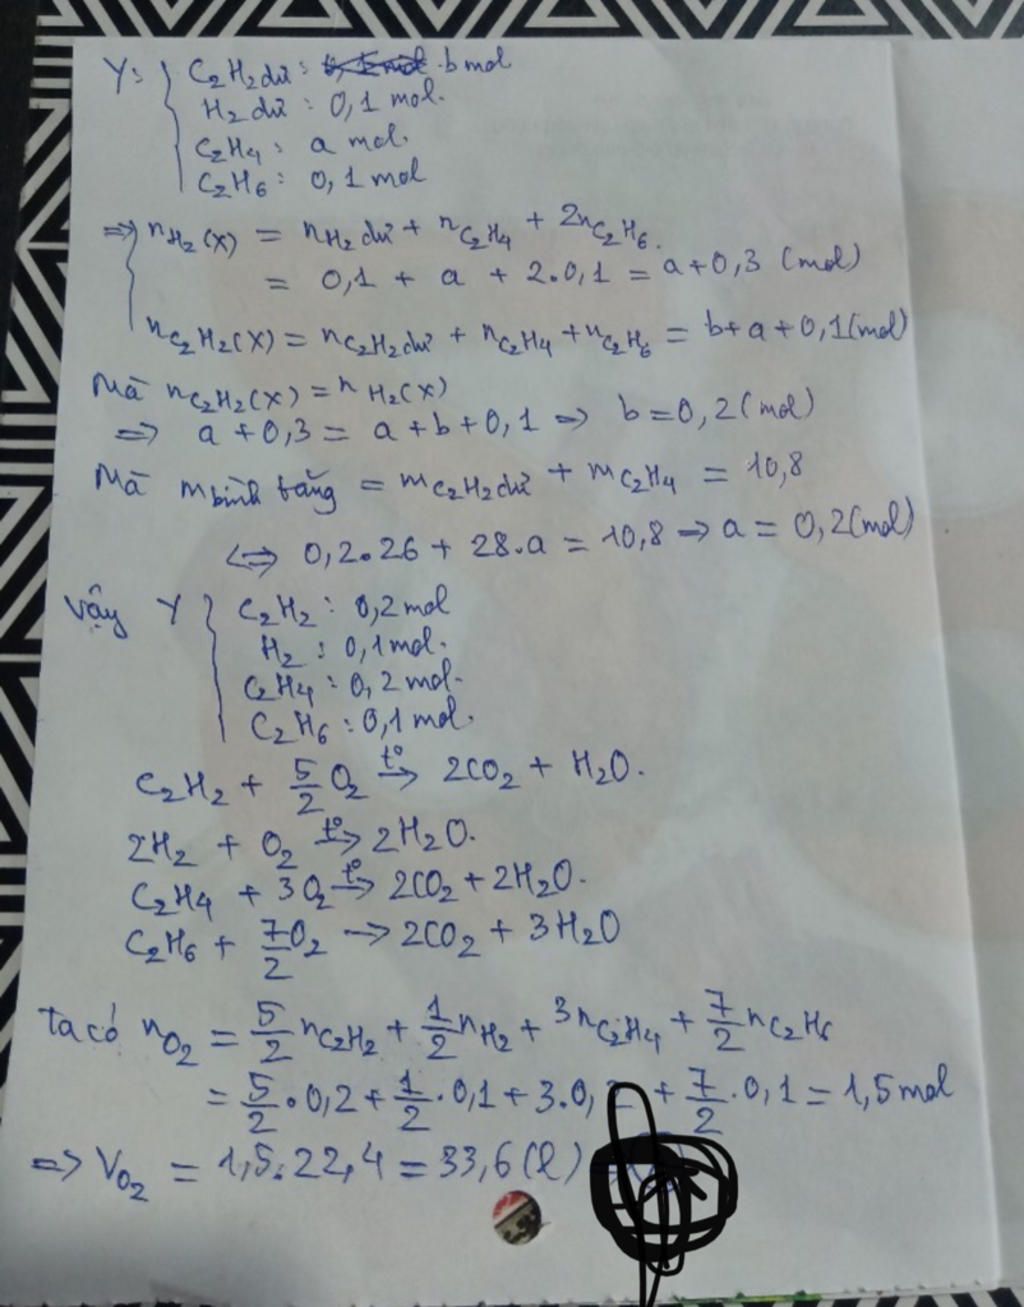 Y: { C₂H₂ dư : b mol
H₂ dư : 0,1 mol.
C₂H₄ : a mol.
C₂H₆ : 0,1 mol
=> { n H₂ (X) = n H₂ dư + n C₂H₄ + 2n C₂H₆.
= 0,1 + a + 2.0,1 = a+0,3 (mol)
n C₂H₂(X) = n C₂H₂ dư + n C₂H₄ + n C₂H₆ = b+a+0,1(mol)
Mà n C₂H₂(X) = n H₂(X)
=> a+0,3 = a+b+0,1 => b=0,2(mol)
Mà m bình tăng = m C₂H₂ dư + m C₂H₄ = 10,8
<=> 0,2.26 + 28.a = 10,8 => a = 0,2(mol)
Vậy Y { C₂H₂ : 0,2 mol
H₂ : 0,1 mol.
C₂H₄ : 0,2 mol.
C₂H₆ : 0,1 mol.
C₂H₂ + 5/2 O₂ t°→ 2CO₂ + H₂O.
2H₂ + O₂ t°→ 2H₂O.
C₂H₄ + 3O₂ t°→ 2CO₂ + 2H₂O.
C₂H₆ + 7/2 O₂ → 2CO₂ + 3H₂O
ta có n O₂ = 5/2 n C₂H₂ + 1/2 n H₂ + 3n C₂H₄ + 7/2 n C₂H₆
= 5/2 . 0,2 + 1/2 . 0,1 + 3.0, + 7/2 . 0,1 = 1,5 mol
=> V O₂ = 1,5.22,4 = 33,6 (l)